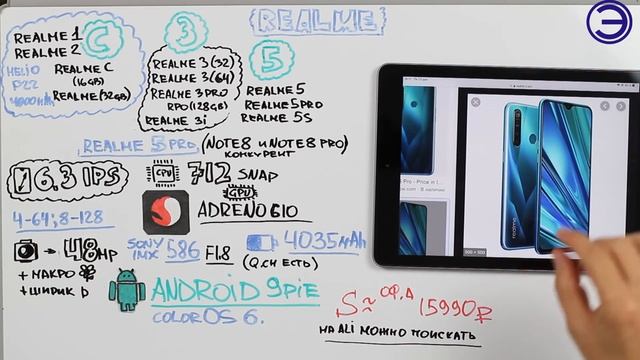 REALME
Э
REALME 1
REALME 2
HELIO
P22
4000mAh
C
REALME C
(16GB)
REALME (32GB)
3
REALME 3 (32)
REALME 3 (64)
REALME 3 PRO
RPO (128GB)
REALME 3i
5
REALME 5
REALME 5 PRO
REALME 5S
REALME 5 PRO (NOTE8 И NOTE8 PRO)
КОНКУРЕНТ
6.3 IPS
CPU 712 SNAP
GPU
ADRENO 610
4-64; 8-128
48MP
SONY
IMX 586 F1.8
4035 mAh
(Q.CH ЕСТЬ)
+ МАКРО
+ ШИРИК
ANDROID 9 PIE
COLOR OS 6.
S ≈ ОФ.Д 15990₽
НА ALI МОЖНО ПОИСКАТЬ
Pro - Price in I...
realme